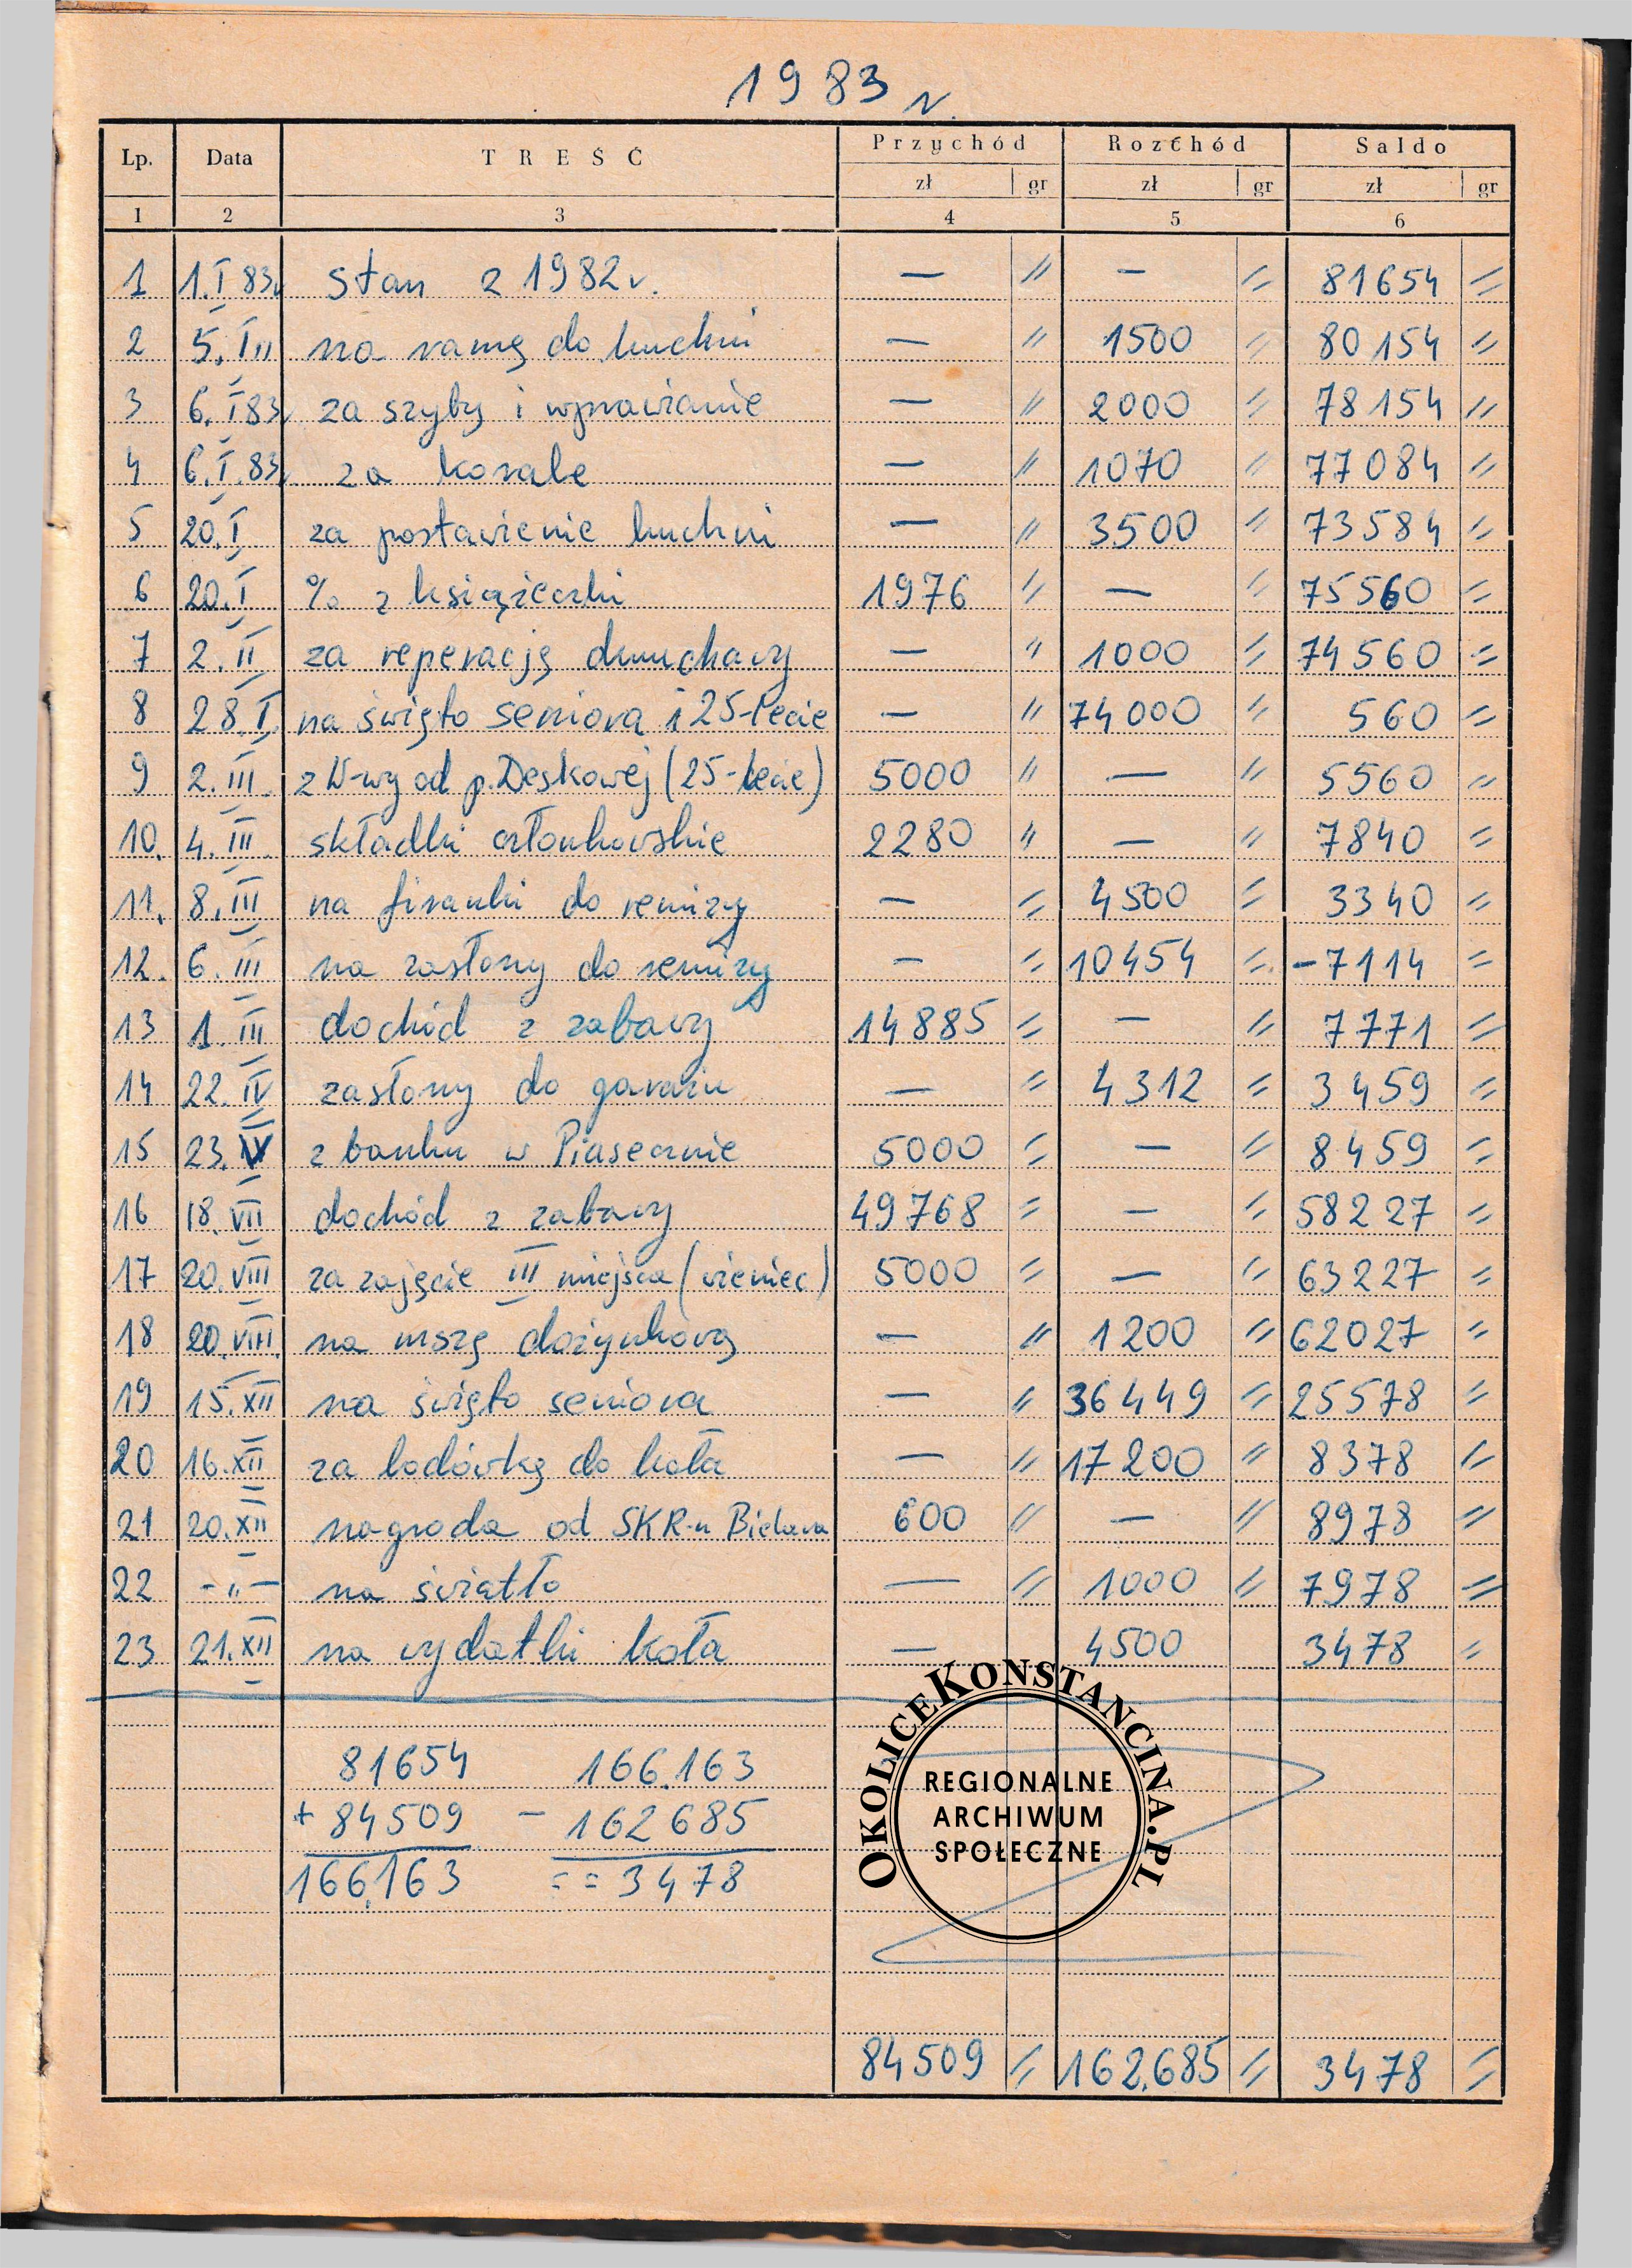 1983 r.
Lp. Data TREŚĆ Przychód Rozchód Saldo
zł gr zł gr zł gr
1 2 3 4 5 6
1 1.I 83r stan z 1982 r. — " — = 81654 =
2 5.I " na ramę do kuchni — " 1500 = 80154 =
3 6.I 83r za szyby i wprawianie — " 2000 = 78154 "
4 6.I.83r za korale — " 1070 " 77084 =
5 20.I za postawienie kuchni — " 3500 " 73584 =
6 20.I % z książeczki 1976 " — " 75560 =
7 2.II za reperację dmuchawy — " 1000 = 74560 =
8 28.I na święto seniora i 25-lecie — " 74000 " 560 =
9 2.III. z W-wy od p. Deskowej (25-lecie) 5000 " — " 5560 =
10. 4.III. składki członkowskie 2280 " — " 7840 =
11. 8.III na firanki do remizy — = 4500 = 3340 =
12. 6.III na zasłony do remizy — = 10454 = -7114 =
13 1.III dochód z zabawy 14885 = — = 7771 =
14 22.IV zasłony do garażu — = 4312 = 3459 =
15 23.IV z banku w Piasecznie 5000 = — = 8459 =
16 18.VII dochód z zabawy 49768 = — = 58227 =
17 20.VIII za zajęcie III miejsca (wieniec) 5000 = — " 63227 =
18 20.VIII. na mszę dożynkową — " 1200 = 62027 =
19 15.XII na święto seniora — " 36449 = 25578 =
20 16.XII za lodówkę do koła — " 17200 " 8378 "
21 20.XII nagroda od SKR-u Bielawa 600 " — " 8978 =
22 -"- na światło — = 1000 " 7978 =
23 21.XII na wydatki koła — 4500 3478 =
81654 166.163
+ 84509 - 162685
166.163 = = 3478
OKOLICEKONSTANCINA.PL
REGIONALNE
ARCHIWUM
SPOŁECZNE
84509 = 162.685 = 3478 =